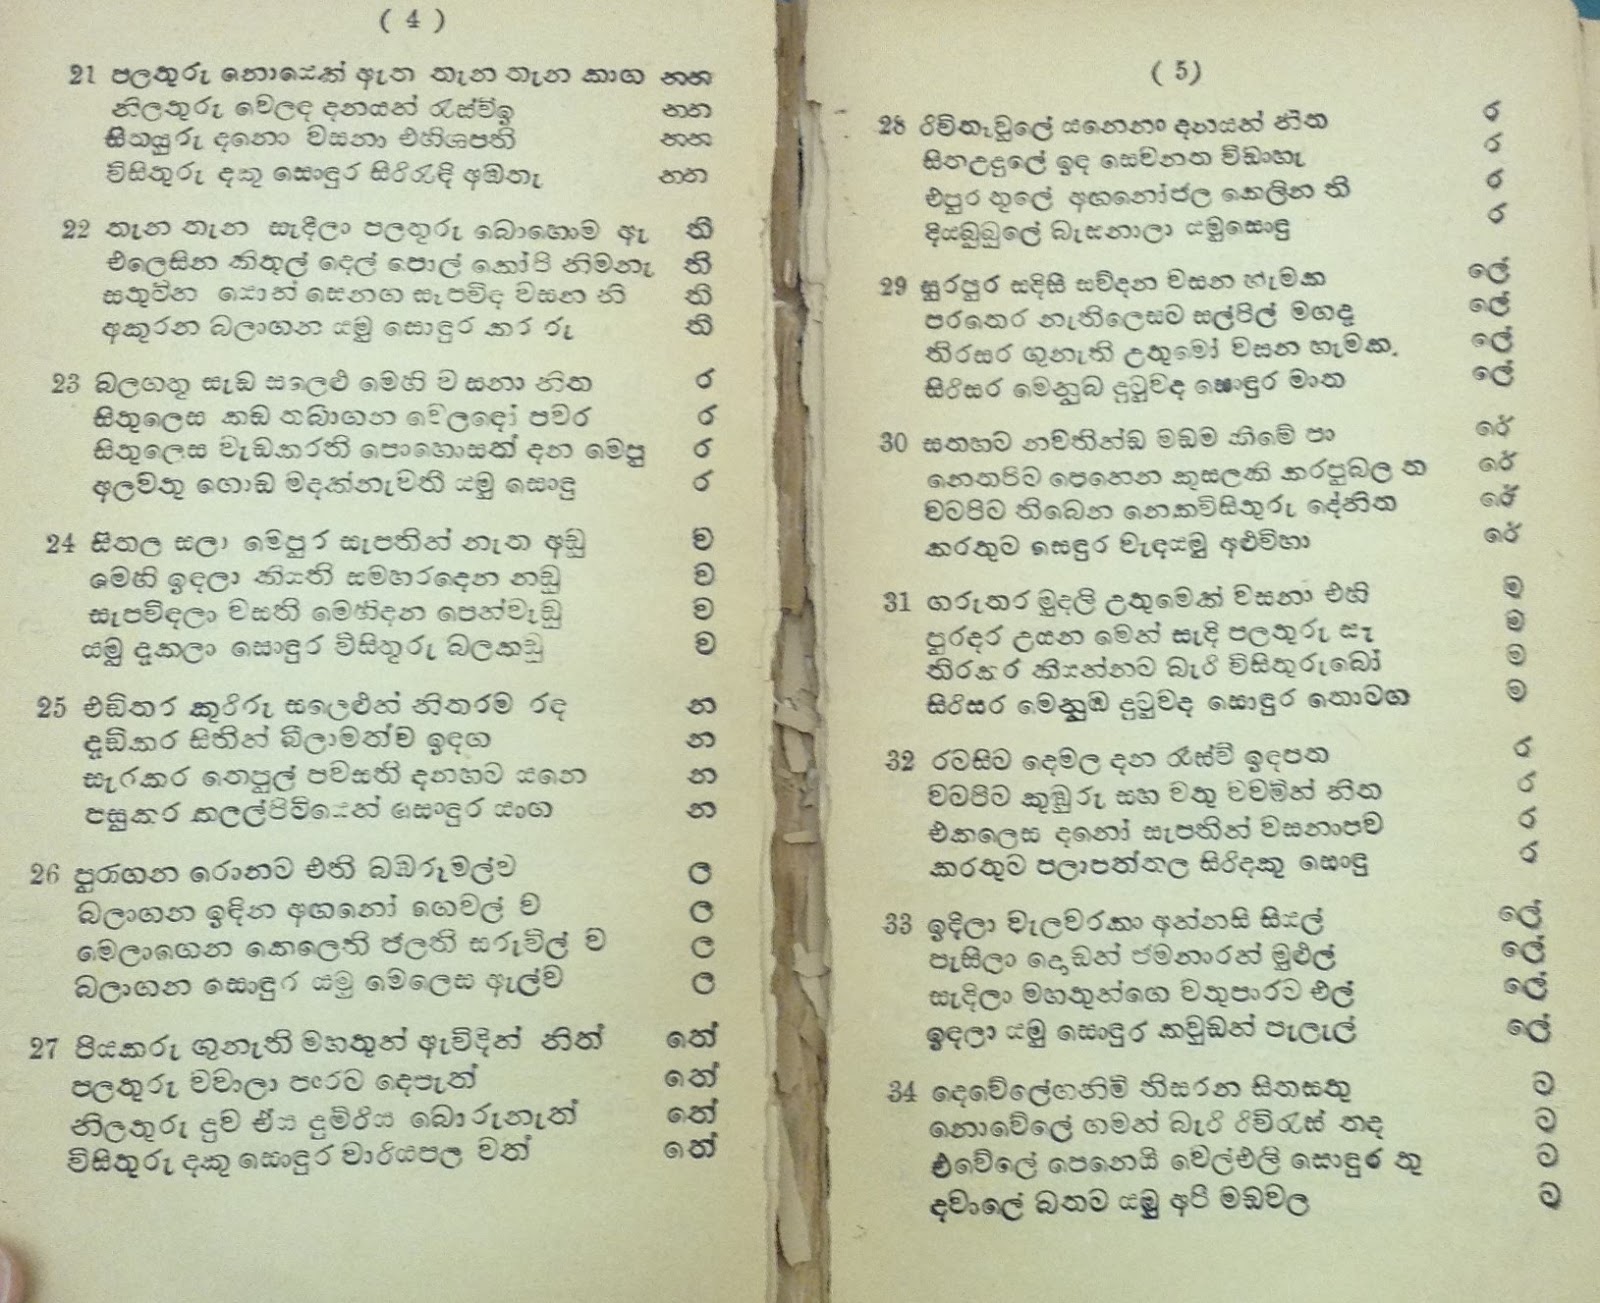 ( 4 )
21 පලතුරු නොයෙක් ඇත තැන තැන කාග නන
නිලතුරු වෙලඳ දනයන් රැස්වීඉ නන
සිතයුරු දනො වසනා එහිශපති නන
විසිතුරු දකු සොඳුර සිරිරැඳි අඹතැ නන
22 තැන තැන සැදීලා පලතුරු බොහොම ඇ ති
එලෙසින කිතුල් දෙල් පොල් කෝපි නිමනැ ති
සතුටින යොන් සෙනග සැපවිඳ වසන නි ති
අකුරන බලාගන යමු සොඳුර කර රු ති
23 බලගතු සැඩ සලෙළු මෙහි වසනා නිත ර
සිතුලෙස කඩ තබාගන වෙලඳෝ පවර ර
සිතුලෙස වැඩකරති පොහොසත් දන මෙපු ර
අලවතු ගොඩ මදක්නැවතී යමු සොඳු ර
24 සිතල සලා මෙපුර සැපතින් නැත අඩු ව
මෙහි ඉඳලා කියති සමහරදෙන නඩු ව
සැපවිඳලා වසති මෙහිදන පෙන්වැඩු ව
යමු දැකලා සොඳුර විසිතුරු බලකඩු ව
25 එඩිතර කුරිරු සලෙළුන් නිතරම රඳ න
දැඩිකර සිතින් බීලාමත්ව ඉඳග න
සැරකර තෙපුල් පවසති දනහට යනෙ න
පසුකර කලල්පිටියෙන් සොඳුර යංග න
26 පුරඟන රොනට එති බඹරුමල්ව ල
බලාගන ඉඳින අඟනෝ ගෙවල් ව ල
මෙලාගෙන කෙලෙති ජලති සරුවිල් ව ල
බලාගන සොඳුර යමු මෙලෙස ඇල්ව ල
27 පියකරු ගුනැති මහතුන් ඇවිදින් නිත් තේ
පලතුරු වවාලා පාරට දෙපැත් තේ
නිලතුරු දුව ඒය දුම්රිය බොරුනැත් තේ
විසිතුරු දකු සොඳුර වාරියපල වත් තේ
( 5 )
28 රිවිතැවුලේ යනෙනා දනයන් නිත ර
සිතඋදුලේ ඉඳ සෙවනත විඩාහැ ර
එපුර තුලේ අඟනෝජල කෙලින ති ර
දියබුබුලේ බැසනාලා යමුසොඳු ර
29 සුරපුර සදිසී සව්දන වසන හැමක ලේ
පරතෙර නැතිලෙසට සල්පිල් මගදැ ලේ
තිරසර ගුනැති උතුමෝ වසන හැමක ලේ
සිරිසර මෙනුබ දුටුවද සොඳුර මාත ලේ
30 සතහට නවතින්ඩ මඩම කිමේ පා රේ
නෙතපිට පෙනෙන කුසලකි කරපුබල ත රේ
වටපිට තිබෙන නෙකවිසිතුරු දේනිත රේ
කරතුට සෙඳුර වැඳයමු අළුවිහා රේ
31 ගරුතර මුදලි උතුමෙක් වසනා එහි ම
පුරඳර උයන මෙන් සැදි පලතුරු සැ ම
තිරකර කියන්නට බැරි විසිතුරුබෝ ම
සිරිසර මෙනුඹ දුටුවද සොඳුර තොටග ම
32 රටසිට දෙමල දන රැස්වී ඉඳපත ර
වටපිට කුඹුරු සහ වතු වවමින් නිත ර
එකලෙස දනෝ සැපතින් වසනාපව ර
කරතුට පලාපත්තල සිරිදකු සොඳු ර
33 ඉදිලා වැලවරකා අන්නාසි සියල් ලේ
පැසීලා දොඩන් ජමනාරන් මුළුල් ලේ
සැදිලා මහතුන්ගෙ වතුපාරට එල් ලේ
ඉඳලා යමු සොඳුර කවුඩන් පැලැල් ලේ
34 දෙවේලේගනිමි තිසරන සිතසතු ට
නොවේලේ ගමන් බැරි රිවිරැස් තද ට
එවේලේ පෙනෙයි වෙල්එලි සොඳුර තු ට
දවාලේ බතට යමු අපි මඩවල ට